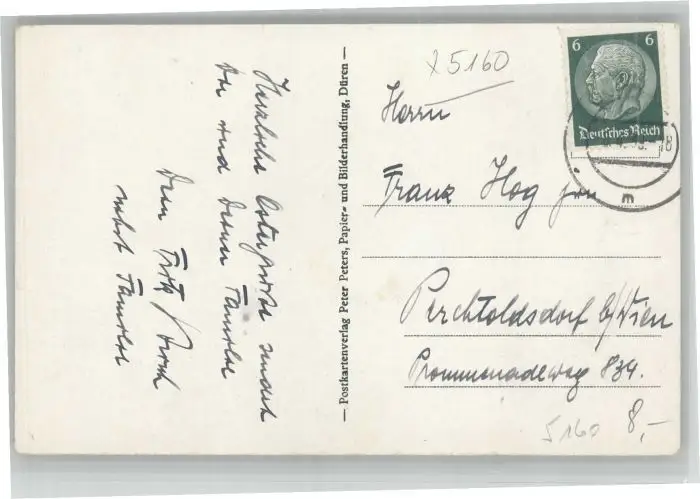 Herzliche Ostergrüße sendet
Dir und Deiner Familie
Dein Fritz
nebst Familie
— Postkartenverlag Peter Peters, Papier- und Bilderhandlung, Düren —
x5160
6 6
Deutsches Reich
18
m
Herrn
Franz Hog jun
Perchtoldsdorf b/Wien
Promenadeweg 834.
5160 8,-